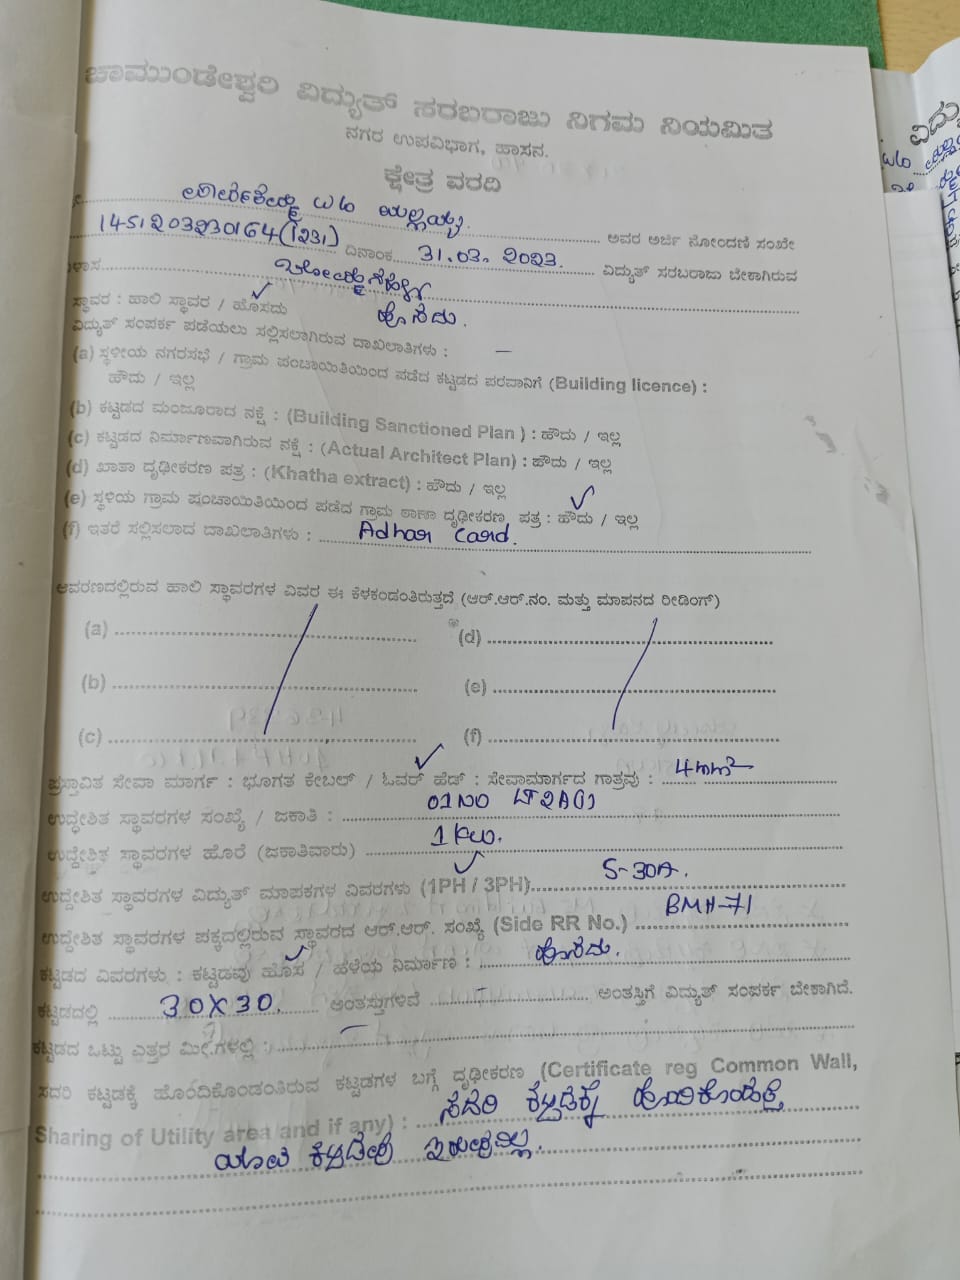 ಚಾಮುಂಡೇಶ್ವರಿ ವಿದ್ಯುತ್ ಸರಬರಾಜು ನಿಗಮ ನಿಯಮಿತ
ನಗರ ಉಪವಿಭಾಗ, ಹಾಸನ.
ಕ್ಷೇತ್ರ ವರದಿ
W/o ಅವರ ಅರ್ಜಿ ನೋಂದಣಿ ಸಂಖ್ಯೇ
1451203230164(1231) ದಿನಾಂಕ 31.03.2023. ವಿದ್ಯುತ್ ಸರಬರಾಜು ಬೇಕಾಗಿರುವ
ಸ್ಥಾವರ : ಹಾಲಿ ಸ್ಥಾವರ / ಹೊಸದು ಹೊಸದು.
ವಿದ್ಯುತ್ ಸಂಪರ್ಕ ಪಡೆಯಲು ಸಲ್ಲಿಸಲಾಗಿರುವ ದಾಖಲಾತಿಗಳು : —
(a) ಸ್ಥಳೀಯ ನಗರಸಭೆ / ಗ್ರಾಮ ಪಂಚಾಯಿತಿಯಿಂದ ಪಡೆದ ಕಟ್ಟಡದ ಪರವಾನಿಗೆ (Building licence) :
ಹೌದು / ಇಲ್ಲ
(b) ಕಟ್ಟಡದ ಮಂಜೂರಾದ ನಕ್ಷೆ : (Building Sanctioned Plan ) : ಹೌದು / ಇಲ್ಲ
(c) ಕಟ್ಟಡದ ನಿರ್ಮಾಣವಾಗಿರುವ ನಕ್ಷೆ : (Actual Architect Plan) : ಹೌದು / ಇಲ್ಲ
(d) ಖಾತಾ ದೃಢೀಕರಣ ಪತ್ರ : (Khatha extract) : ಹೌದು / ಇಲ್ಲ
(e) ಸ್ಥಳಿಯ ಗ್ರಾಮ ಪಂಚಾಯಿತಿಯಿಂದ ಪಡೆದ ಗ್ರಾಮ ಠಾಣಾ ದೃಢೀಕರಣ ಪತ್ರ : ಹೌದು / ಇಲ್ಲ
(f) ಇತರೆ ಸಲ್ಲಿಸಲಾದ ದಾಖಲಾತಿಗಳು : Adhar Card.
ಆವರಣದಲ್ಲಿರುವ ಹಾಲಿ ಸ್ಥಾವರಗಳ ವಿವರ ಈ ಕೆಳಕಂಡಂತಿರುತ್ತದೆ (ಆರ್.ಆರ್.ನಂ. ಮತ್ತು ಮಾಪನದ ರೀಡಿಂಗ್)
(a) (d)
(b) (e)
(c) (f)
ಪ್ರಸ್ತಾವಿತ ಸೇವಾ ಮಾರ್ಗ : ಭೂಗತ ಕೇಬಲ್ / ಓವರ್ ಹೆಡ್ : ಸೇವಾಮಾರ್ಗದ ಗಾತ್ರವು : 4mm²
ಉದ್ದೇಶಿತ ಸ್ಥಾವರಗಳ ಸಂಖ್ಯೆ / ಜಕಾತಿ : 01 NO LT2A(i)
ಉದ್ದೇಶಿತ ಸ್ಥಾವರಗಳ ಹೊರೆ (ಜಕಾತಿವಾರು) 1 KW.
ಉದ್ದೇಶಿತ ಸ್ಥಾವರಗಳ ವಿದ್ಯುತ್ ಮಾಪಕಗಳ ವಿವರಗಳು (1PH / 3PH) 5-30A.
ಉದ್ದೇಶಿತ ಸ್ಥಾವರಗಳ ಪಕ್ಕದಲ್ಲಿರುವ ಸ್ಥಾವರದ ಆರ್.ಆರ್. ಸಂಖ್ಯೆ (Side RR No.) BMH-71
ಕಟ್ಟಡದ ವಿವರಗಳು : ಕಟ್ಟಡವು ಹೊಸ / ಹಳೆಯ ನಿರ್ಮಾಣ : ಹೊಸದು.
ಕಟ್ಟಡದಲ್ಲಿ 30X30. ಅಂತಸ್ತುಗಳಿವೆ — ಅಂತಸ್ತಿಗೆ ವಿದ್ಯುತ್ ಸಂಪರ್ಕ ಬೇಕಾಗಿದೆ.
ಕಟ್ಟಡದ ಒಟ್ಟು ಎತ್ತರ ಮೀಗಳಲ್ಲಿ : —
ಸದರಿ ಕಟ್ಟಡಕ್ಕೆ ಹೊಂದಿಕೊಂಡಂತಿರುವ ಕಟ್ಟಡಗಳ ಬಗ್ಗೆ ದೃಢೀಕರಣ (Certificate reg Common Wall,
Sharing of Utility area and if any) : ಸದರಿ ಕಟ್ಟಡಕ್ಕೆ ಹೊಂದಿಕೊಂಡಂತೆ
ಯಾವ ಕಟ್ಟಡವು ಇರುವುದಿಲ್ಲ.